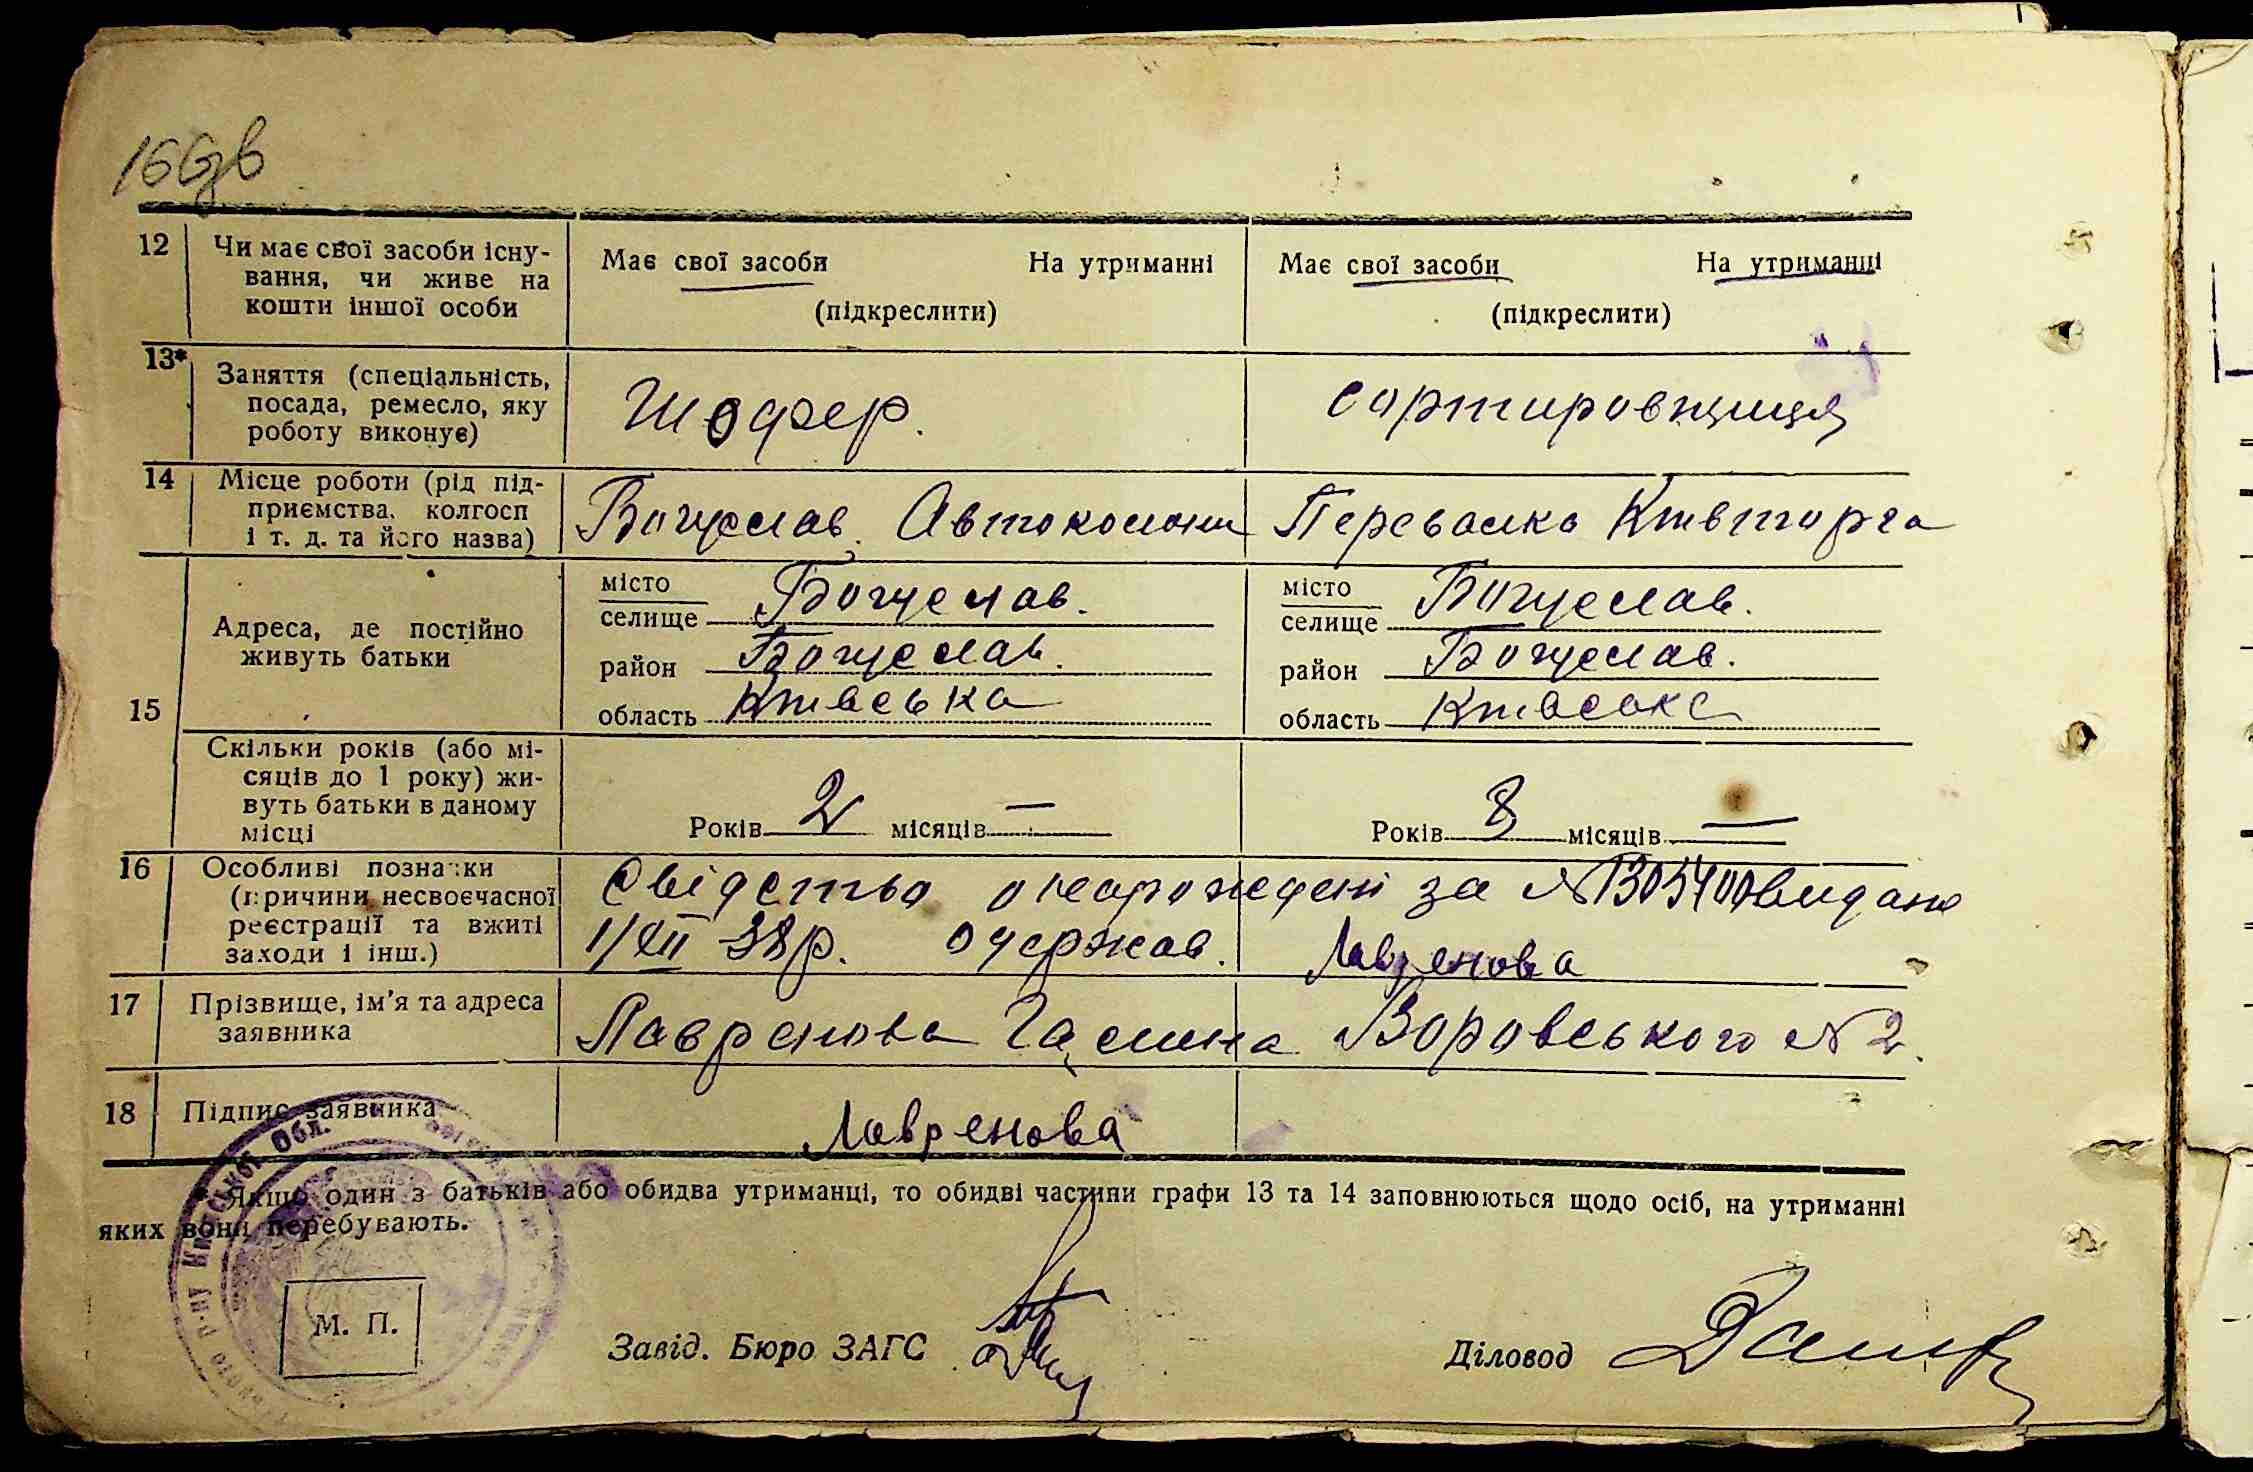 12 Чи має свої засоби існу- Має свої засоби На утриманні Має свої засоби На утриманні
вання, чи живе на
кошти іншої особи (підкреслити) (підкреслити)
13* Заняття (спеціальність,
посада, ремесло, яку Шофер. сортировщиця
роботу виконує)
14 Місце роботи (рід під-
приємства, колгосп Богуслав. Автоколони Перевалка
і т. д. та його назва)
15 Адреса, де постійно
живуть батьки
місто
селище Богуслав. місто
селище Богуслав.
район Богуслав. район Богуслав.
область Київська область Київська
Скільки років (або мі-
сяців до 1 року) жи-
вуть батьки в даному
місці Років 2 місяців — Років 8 місяців —
16 Особливі познаки
(причини несвоєчасної
реєстрації та вжиті
заходи і інш.)
Свідетво о за № видано
1/XII 38р. одержав. Лавренова
17 Прізвище, ім'я та адреса
заявника Лавренова Галина Воровського № 2.
18 Підпис заявника Лавренова
* Якщо один з батьків або обидва утриманці, то обидві частини графи 13 та 14 заповнюються щодо осіб, на утриманні
яких вони перебувають.
М. П.
Завід. Бюро ЗАГС Діловод